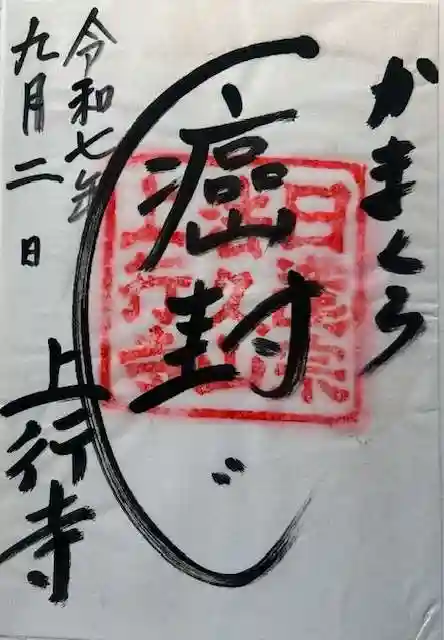 かまくら
癌封じ
令和七年
九月二日
上行寺